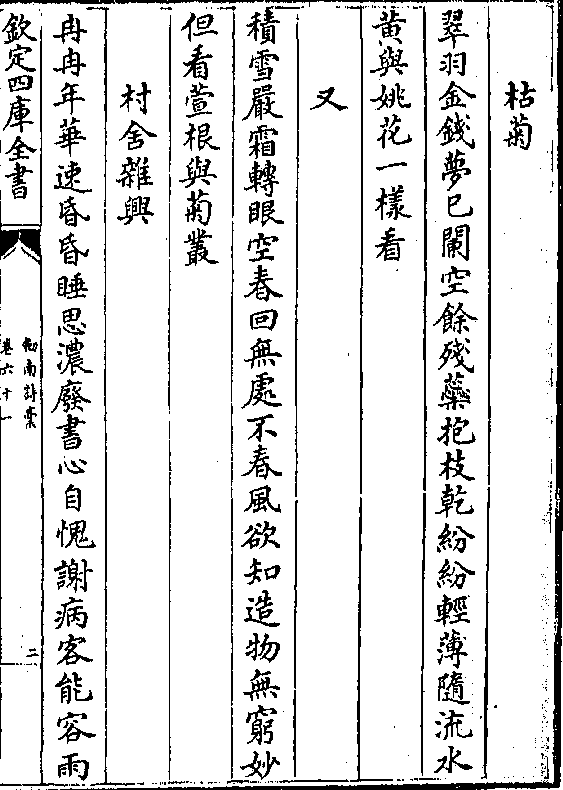 枯菊
翠羽金錢夢已闌空餘殘蘂抱枝乾紛紛輕薄隨流水
黄與姚花一樣看
又
積雪嚴霜轉眼空春回無處不春風欲知造物無窮妙
但看萱根與菊叢
村舍雜興
冉冉年華速昏昏睡思濃廢書心自愧謝病客能容雨
欽定四庫全書
劍南詩稾
卷六十一
二